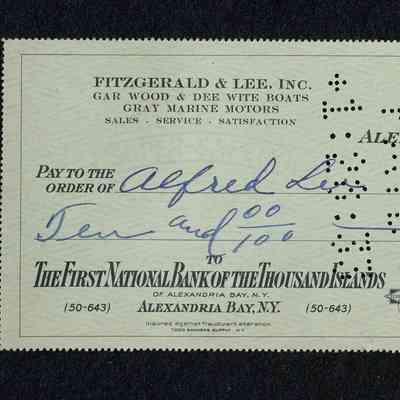 FITZGERALD & LEE, INC.
GAR WOOD & DEE WITE BOATS
GRAY MARINE MOTORS
SALES - SERVICE - SATISFACTION
ALE
PAY TO THE
ORDER OF Alfred
Ten and 00/100
TO
THE FIRST NATIONAL BANK OF THE THOUSAND ISLANDS
OF ALEXANDRIA BAY, N.Y.
(50-643) ALEXANDRIA BAY, N.Y. (50-643)
Insured against fraudulent alteration
TODD BANKERS SUPPLY - N.Y.